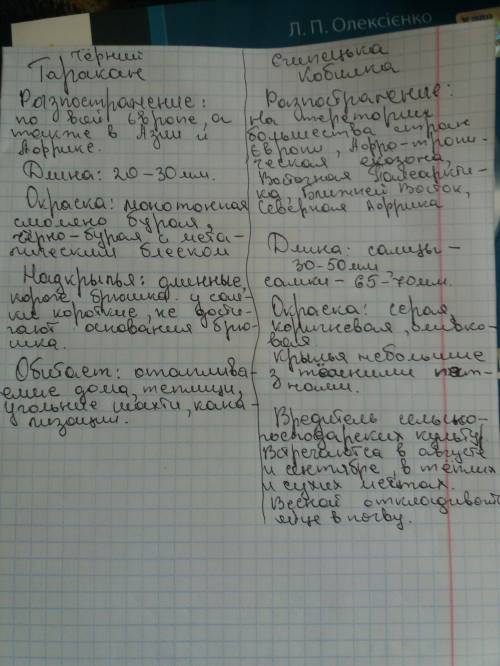 Л. П. Олексієнко
Чёрний
Таракан
Розпостранение:
по всей Европе, а
также в Азии и
Африке.
Длина: 20-30мм.
Окраска: монотонная
смоляно бурая,
чёрно-бурая с мета-
лическим блеском
Надкрылья: длинные,
короче брюшка. у сам-
ки короткие, не дости-
гают основания брю-
шка.
Обитает: отаплива-
емие дома, теплици,
угольние шахти, кана-
лизации.
Єгипецька
Кобилка
Розпобранение:
на територии
большества стран
Европи, Афро-тропи-
ческая екозона,
Восточная Палеаркти-
ка, Ближней Восток,
Северная Африка
Длина: самцы -
30-50мм,
самки - 65-70мм.
Окраска: серая,
коричневая, оливко-
вая
Крылья небольшие
з тёмними пят-
нами.
Вредитель сельско-
господарских культур
Встречаются в августе
и сентябре, в тёплих
и сухих местах.
Весной откладивают
яйце в почву.